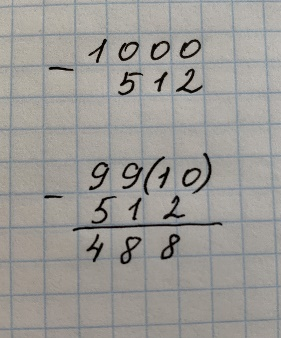 - 1000
512
- 99(10)
512
488